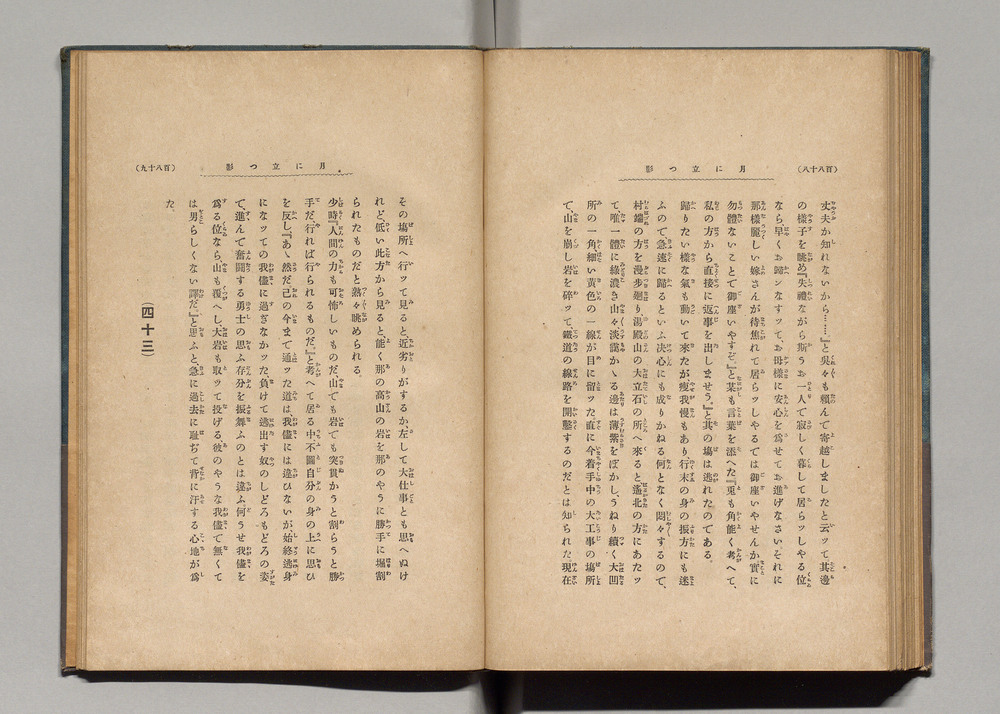 (百八十八)
月に立つ影
丈夫か知れないから……』と吳々も賴んで寄越しましたと云ッて其邊
の樣子を眺め『失禮ながら斯うお一人で寂しく暮して居らッしやる位
なら早くお歸ンなすッて、お母樣に安心を爲せてお進げなさい、それに
那樣麗しい嫁さんが待焦れて居らッしやるでは御座いやせんか實に
勿體ないことで御座いやすぞ。』と某も言葉を添へた『兎も角能く考へて、
私の方から直接に返事を出しませう。』と其の塲は逃れたのである。
歸りたい樣な氣も動いて來たが、瘦我慢もあり、行末の身の振方にも迷
ふので急速に歸るといふ決心にも成りかね何となく悶々するので、
村端の方を漫步廻り湯殿山の大立石の所へ來ると遙北の方にあたッ
て、唯一體に綠濃き山々淡靄かゝる邊は薄紫をぼかし、うねり續く大凹
所の一角細い黃色の一線が目に留ッた直に今着手中の大工事の塲所
で、山を崩し岩を碎ッて鐵道の線路を開鑿するのだとは知られた現在
(百八十九)
月に立つ影
その塲所へ行ッて見ると近劣りがするか、左して大仕事とも思へぬけ
れど、低い此方から見ると、能く那の高山の岩を那のやうに勝手に堀割
られたものだと熟々眺められる。
少時『人間の力も可怖しいものだ、山でも岩でも突貫かうと割らうと勝
手だ、行れば行られるものだ。』と考へて居る中不圖自分の身の上に思ひ
を反し『あゝ然だ己の今まで通ッた道は、我儘には違ひないが始終逃身
になッての我儘に過ぎなかッた、負けて逃出す奴のしどろもどろの姿、
て、進んで奮鬪する勇士の思ふ存分を振舞ふのとは違ふ、何うせ我儘を
爲る位なら、山も覆へし大岩も取ッて投げる彼のやうな我儘で無くて
は男らしくない譯だ。』と思ふと、急に過去に耻ぢて背に汗する心地が爲
た。
(四十三)